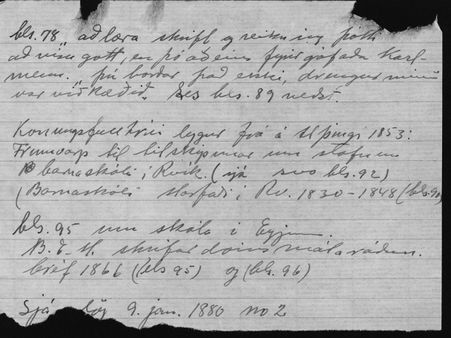 bls. 78 að læra skrift og reikning þótti
að vísu gott, en þó aðeins fyrir gáfaða karl-
menn. þú borðar það ekki, drengur minn
var viðkvæðið. Les bls. 89 neðst.
Konungsfulltrúi leggur frá á alþingi 1853:
Frumvarp til tilskipunar um stofnun
barnaskóla í Rvík. (sjá svo bls. 92)
(Barnaskóli starfaði í Rv. 1830-1848 (bls. 90)
bls. 95 um skóla í Eyjum.
B. E. M. skrifar dómsmálaráðun.
bréf 1866 (bls 95) og (bls. 96)
Sjá lög 9. jan. 1880 no 2